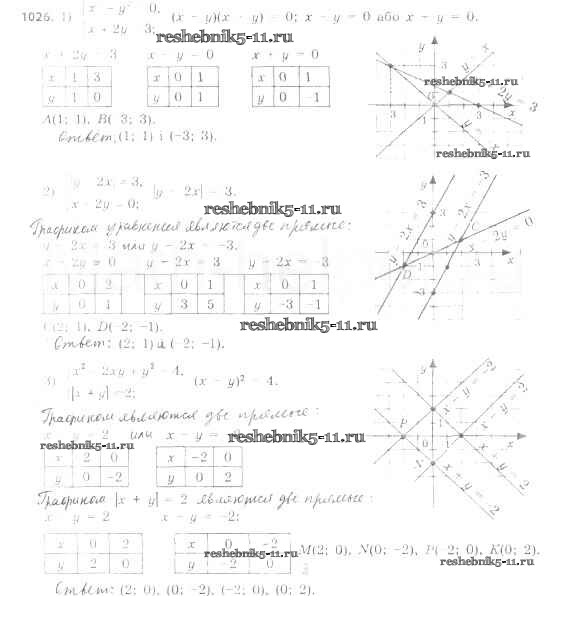 1026. 1) x − y² = 0, x + 2y = 3; (x − y)(x + y) = 0; x − y = 0 або x + y = 0.
reshebnik5-11.ru
x + 2y = 3 x − y = 0 x + y = 0
x 1 3 x 0 1 x 0 1
y 1 0 y 0 1 y 0 −1
A(1; 1), B(−3; 3).
Ответ: (1; 1) і (−3; 3).
reshebnik5-11.ru
2) |y − 2x| = 3, x − 2y = 0; |y − 2x| = 3.
reshebnik5-11.ru
Графиком уравнения являются две прямые:
y − 2x = 3 или y − 2x = −3.
x − 2y = 0 y − 2x = 3 y − 2x = −3
x 0 2 x 0 1 x 0 1
y 0 1 y 3 5 y −3 −1
C(2; 1), D(−2; −1).
reshebnik5-11.ru
Ответ: (2; 1) и (−2; −1).
3) x² − 2xy + y² = 4, |x + y| = 2; (x − y)² = 4.
Графиком являются две прямые:
x − y = 2 или x − y = −2
reshebnik5-11.ru
reshebnik5-11.ru
x 2 0 x −2 0
y 0 −2 y 0 2
Графиком |x + y| = 2 являются две прямые:
x + y = 2 x + y = −2;
x 0 2 x 0 −2
y 2 0 y −2 0
reshebnik5-11.ru
M(2; 0), N(0; −2), P(−2; 0), K(0; 2).
reshebnik5-11.ru
Ответ: (2; 0), (0; −2), (−2; 0), (0; 2).